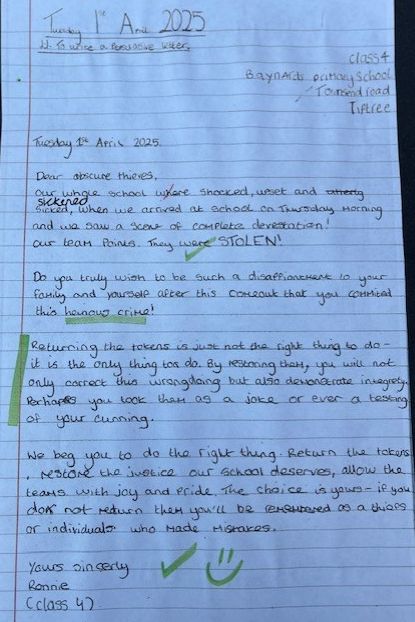 Tuesday 1st April 2025
W: To write a persuasive letter.
Class 4
Baynards primary School
Townsend road
Tiptree
Tuesday 1st April 2025.
Dear obscure thieves,
Our whole school where shocked, upset and utterly
sickened
sicked, when we arrived at school on Thursday morning
and we saw a scene of complete devestation!
Our team Points. They were STOLEN!
Do you truly wish to be such a disaffiontment to your
family and yourself after this comeout that you commited
this heinous crime!
Returning the tokens is just not the right thing to do -
it is the only thing too do. By restoring them, you will not
only correct this wrongdoing but also demonstrate integrety.
Perhapes you took them as a joke or ever a testing
of your cunning.
We beg you to do the right thing. Return the tokens
, restore the justice our school deserves, allow the
teams with joy and pride. The choice is yours - if you
don not return them you'll be remembered as a thiefs
or individuals who made mistakes.
Yours sincerly
Ronnie
(class 4)